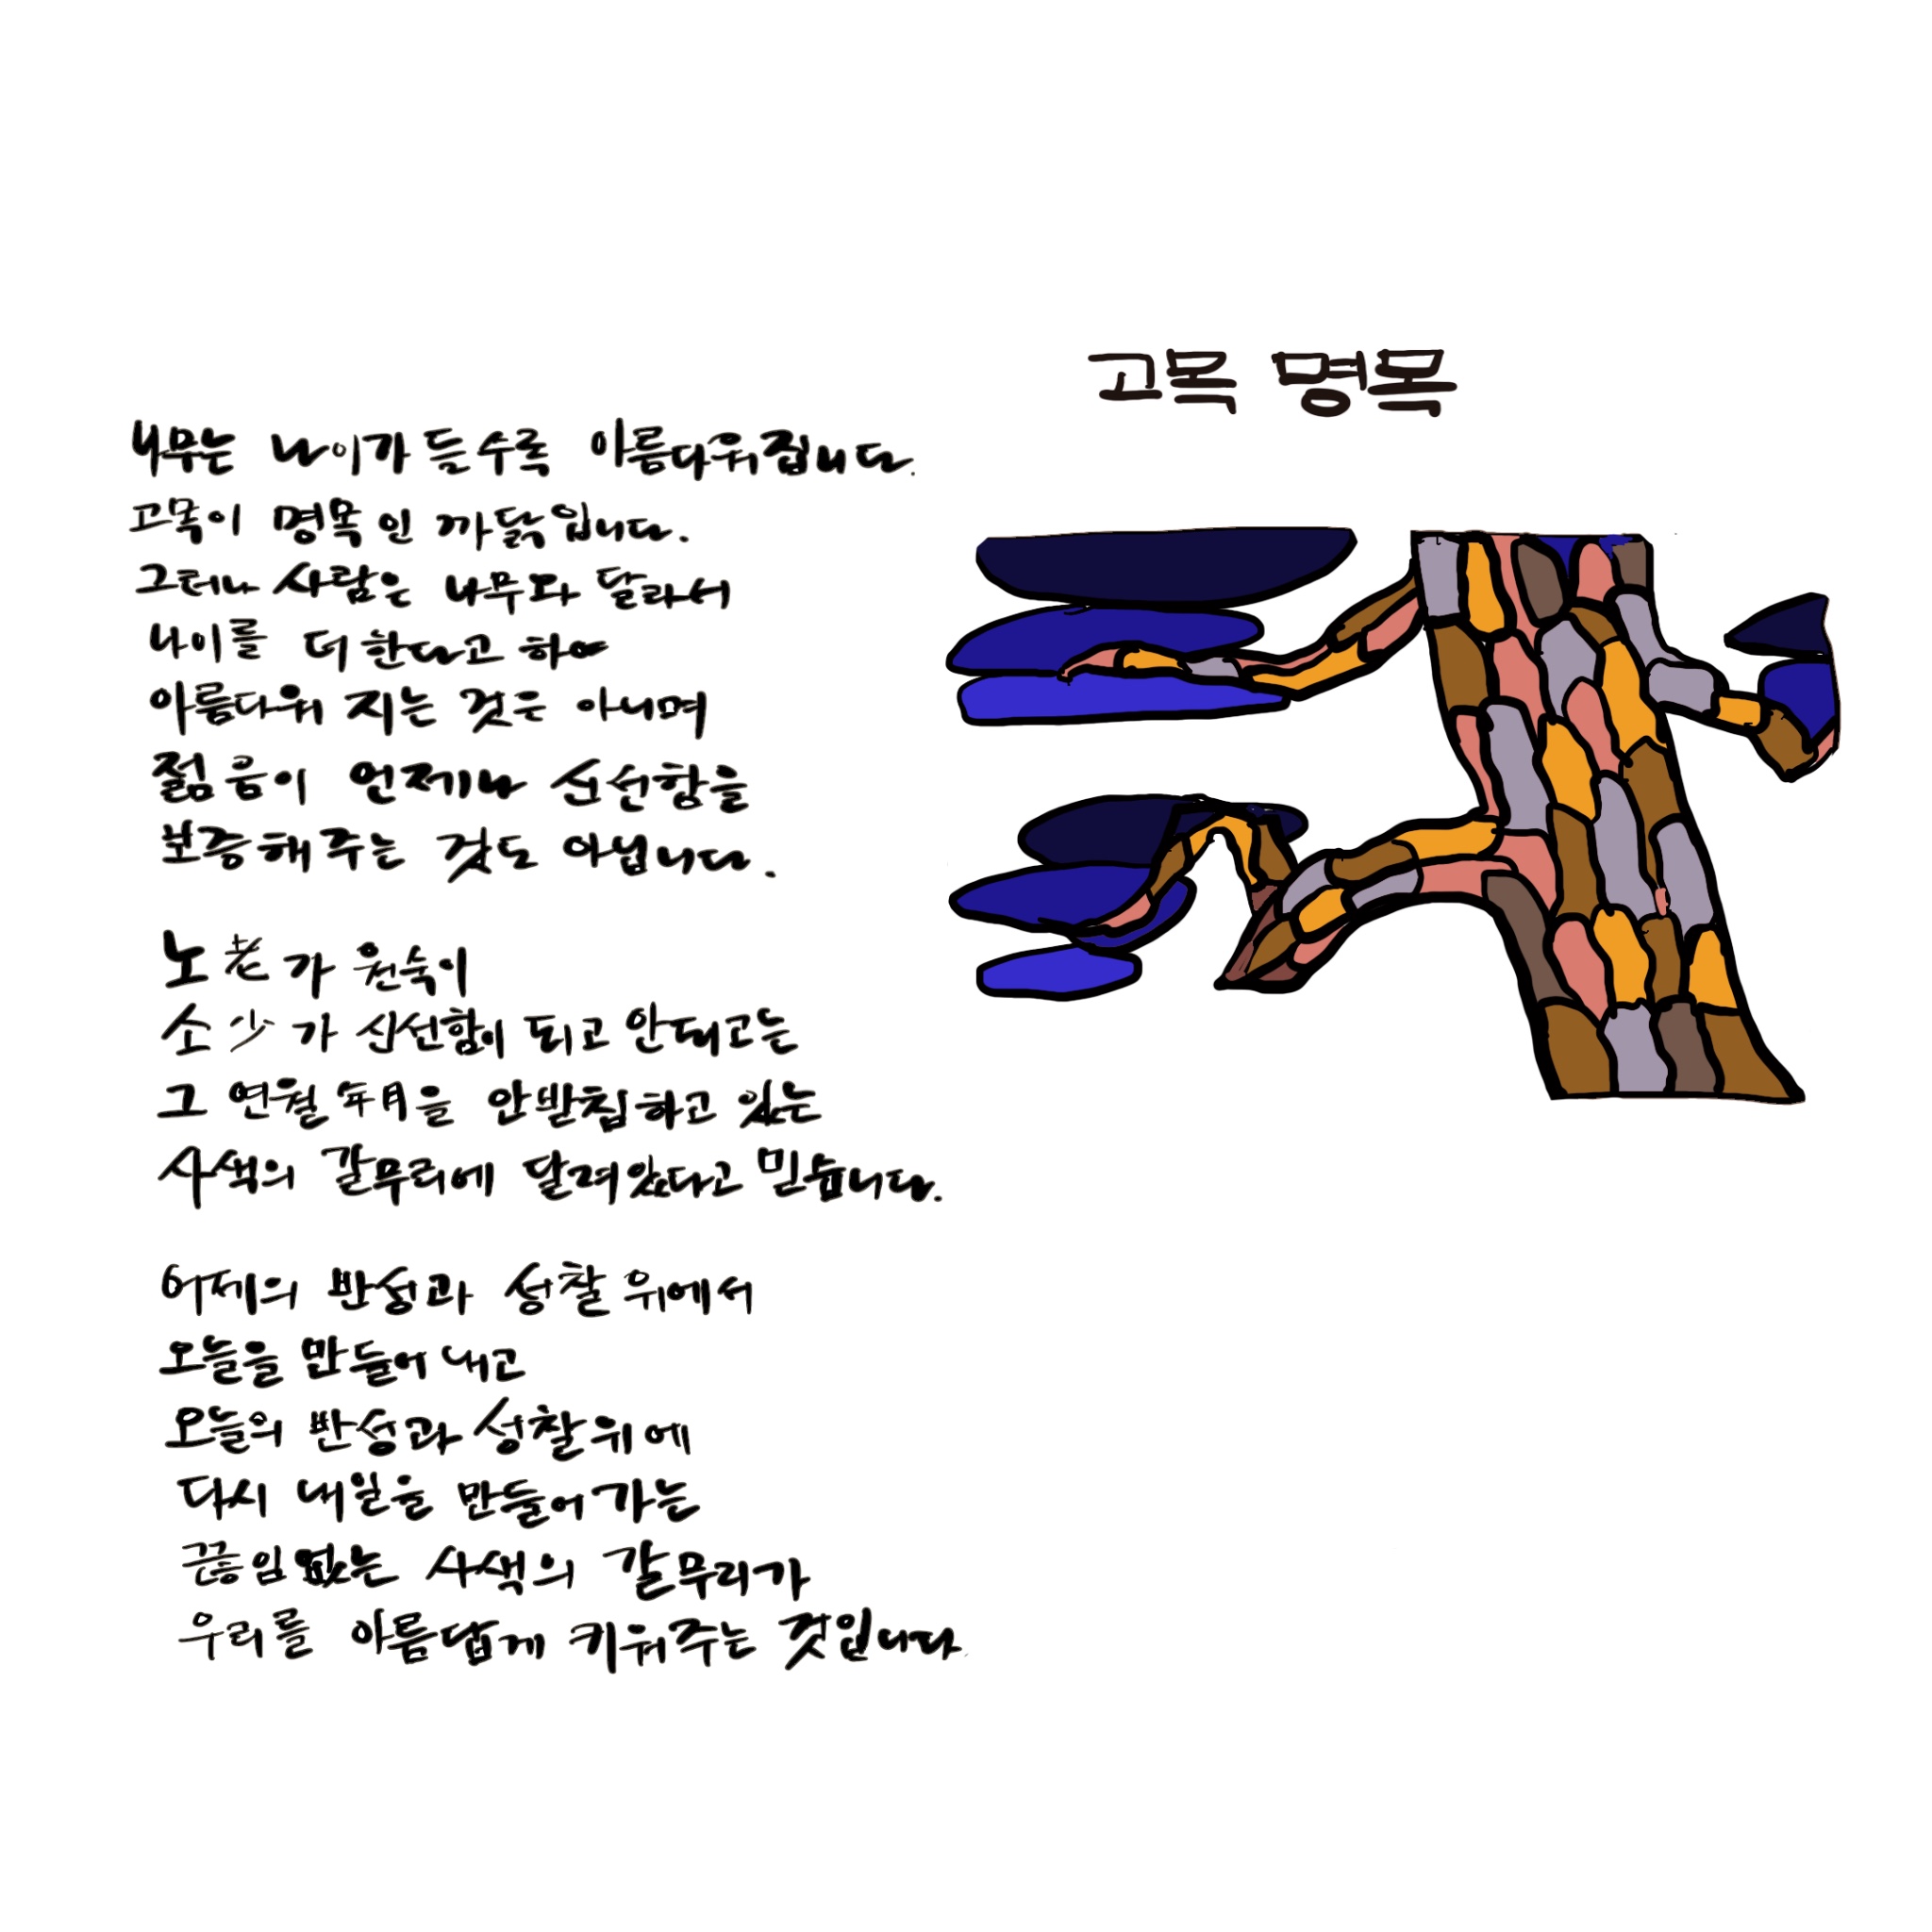 고목 명목
나무는 나이가 들수록 아름다워집니다.
고목이 명목인 까닭입니다.
그러나 사람은 나무와 달라서
나이를 더한다고 하여
아름다워 지는 것은 아니며
젊음이 언제나 신선함을
보증해주는 것도 아닙니다.
노老가 원숙이
소少가 신선함이 되고 안되고는
그 연월年月을 안받침하고 있는
사색의 갈무리에 달려있다고 믿습니다.
어제의 반성과 성찰 위에서
오늘을 만들어 내고
오늘의 반성과 성찰위에
다시 내일을 만들어가는
끊임없는 사색의 갈무리가
우리를 아름답게 키워주는 것입니다.